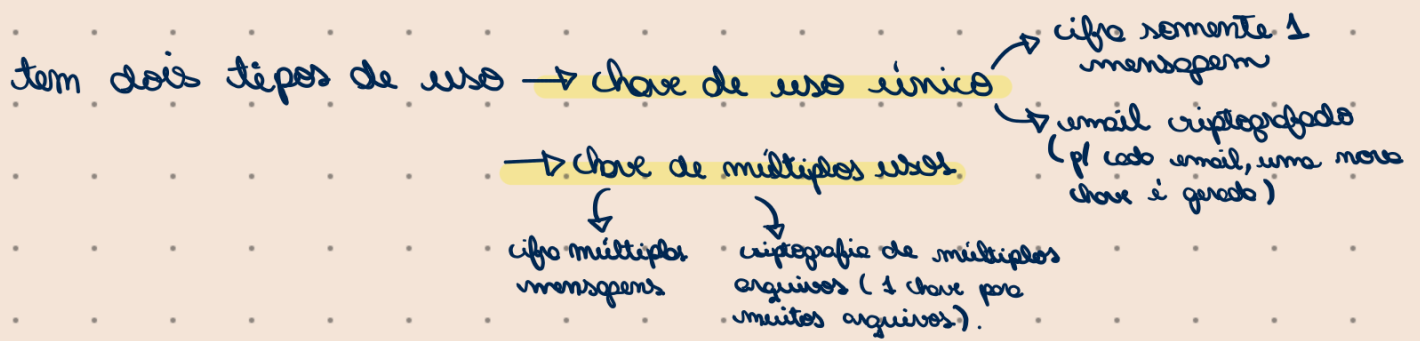 tem dois tipos de uso → chave de uso único
cifra somente 1
mensagem
email criptografado
(p/ cada email, uma nova
chave é gerada)
→ chave de múltiplos usos
cifra múltiplas
mensagens
criptografia de múltiplos
arquivos (1 chave para
muitos arquivos).